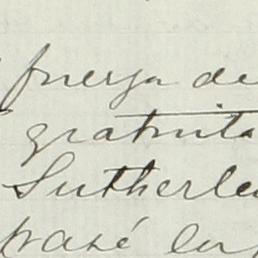 fuerza de
gratuita
Sutherle
pasé los